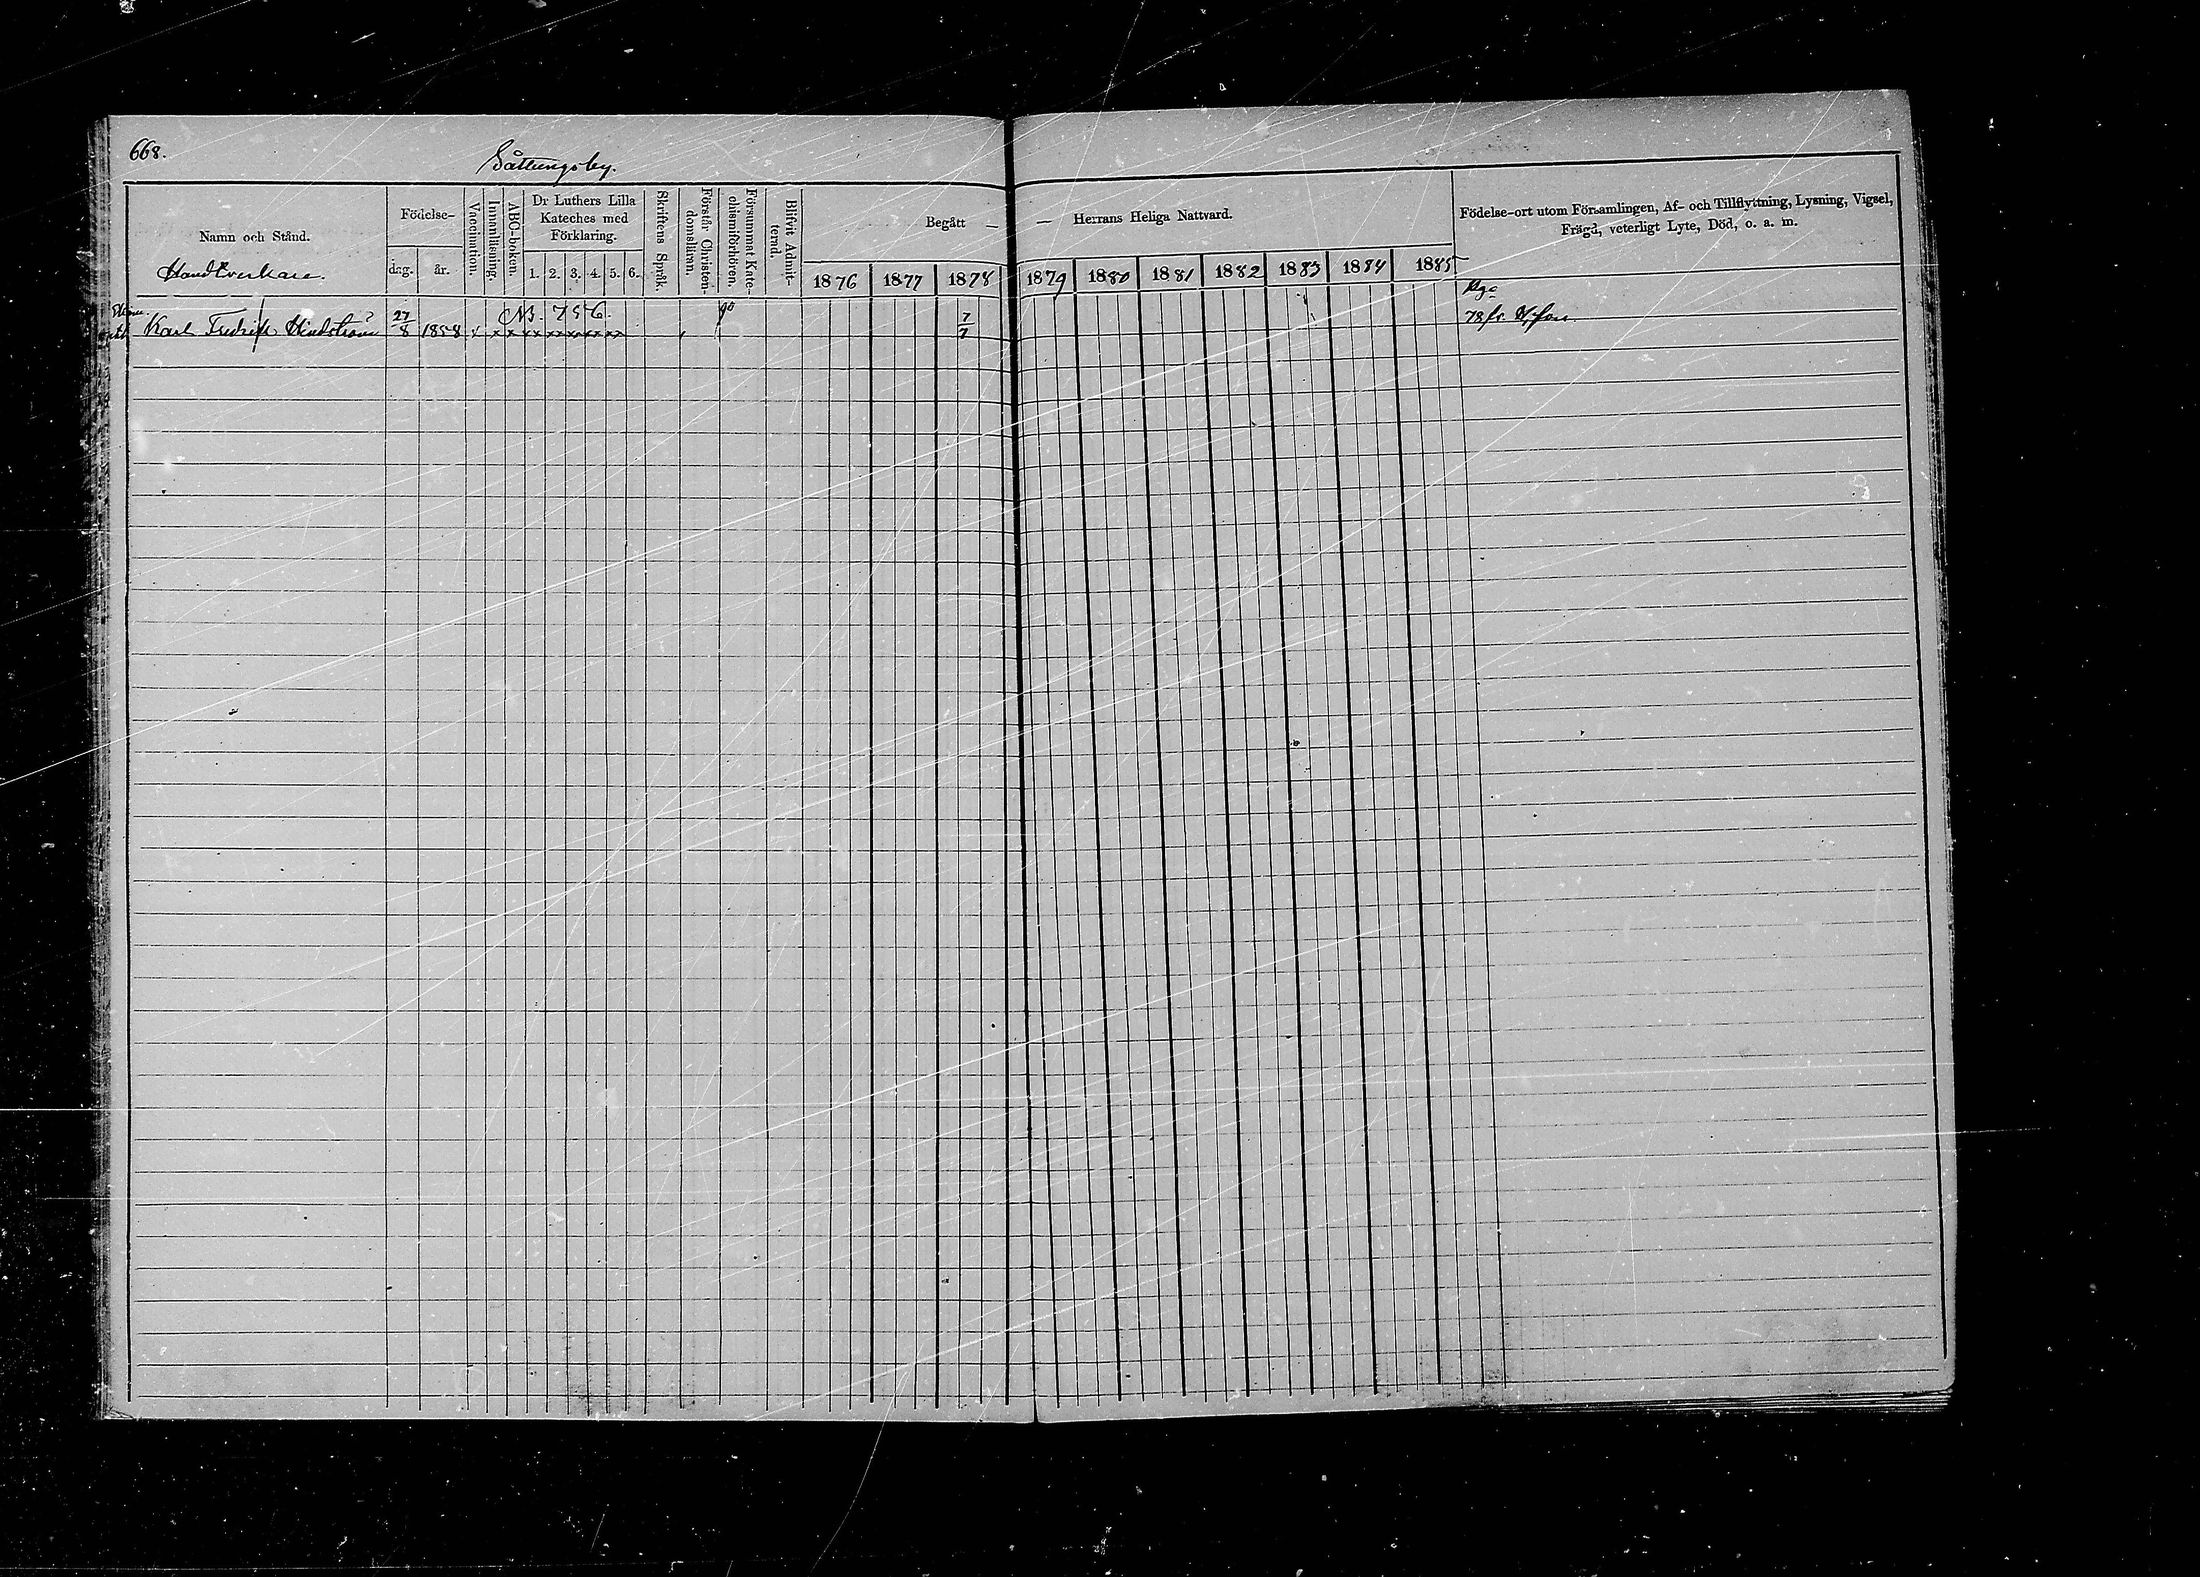 668.
Såttungsby.
Namn och Stånd.
Handtverkare.
Födelse-
dag.
år.
Vaccination.
Innanläsning.
ABC-boken.
Dr Luthers Lilla
Kateches med
Förklaring.
1. 2. 3. 4. 5. 6.
Skriftens Språk.
Förstår Christen-
domsläran.
Försummat Kate-
chismiförhören.
Blifvit Admit-
terad.
Begått —
1876 1877 1878
— Herrans Heliga Nattvard.
1879 1880 1881 1882 1883 1884 1885
Födelse-ort utom Församlingen, Af- och Tillflyttning, Lysning, Vigsel,
Frägd, veterligt Lyte, Död, o. a. m.
Karl Fredrik 27/8 1858 x x x x x x x x x 7/7
NB. 756.
78 fr.